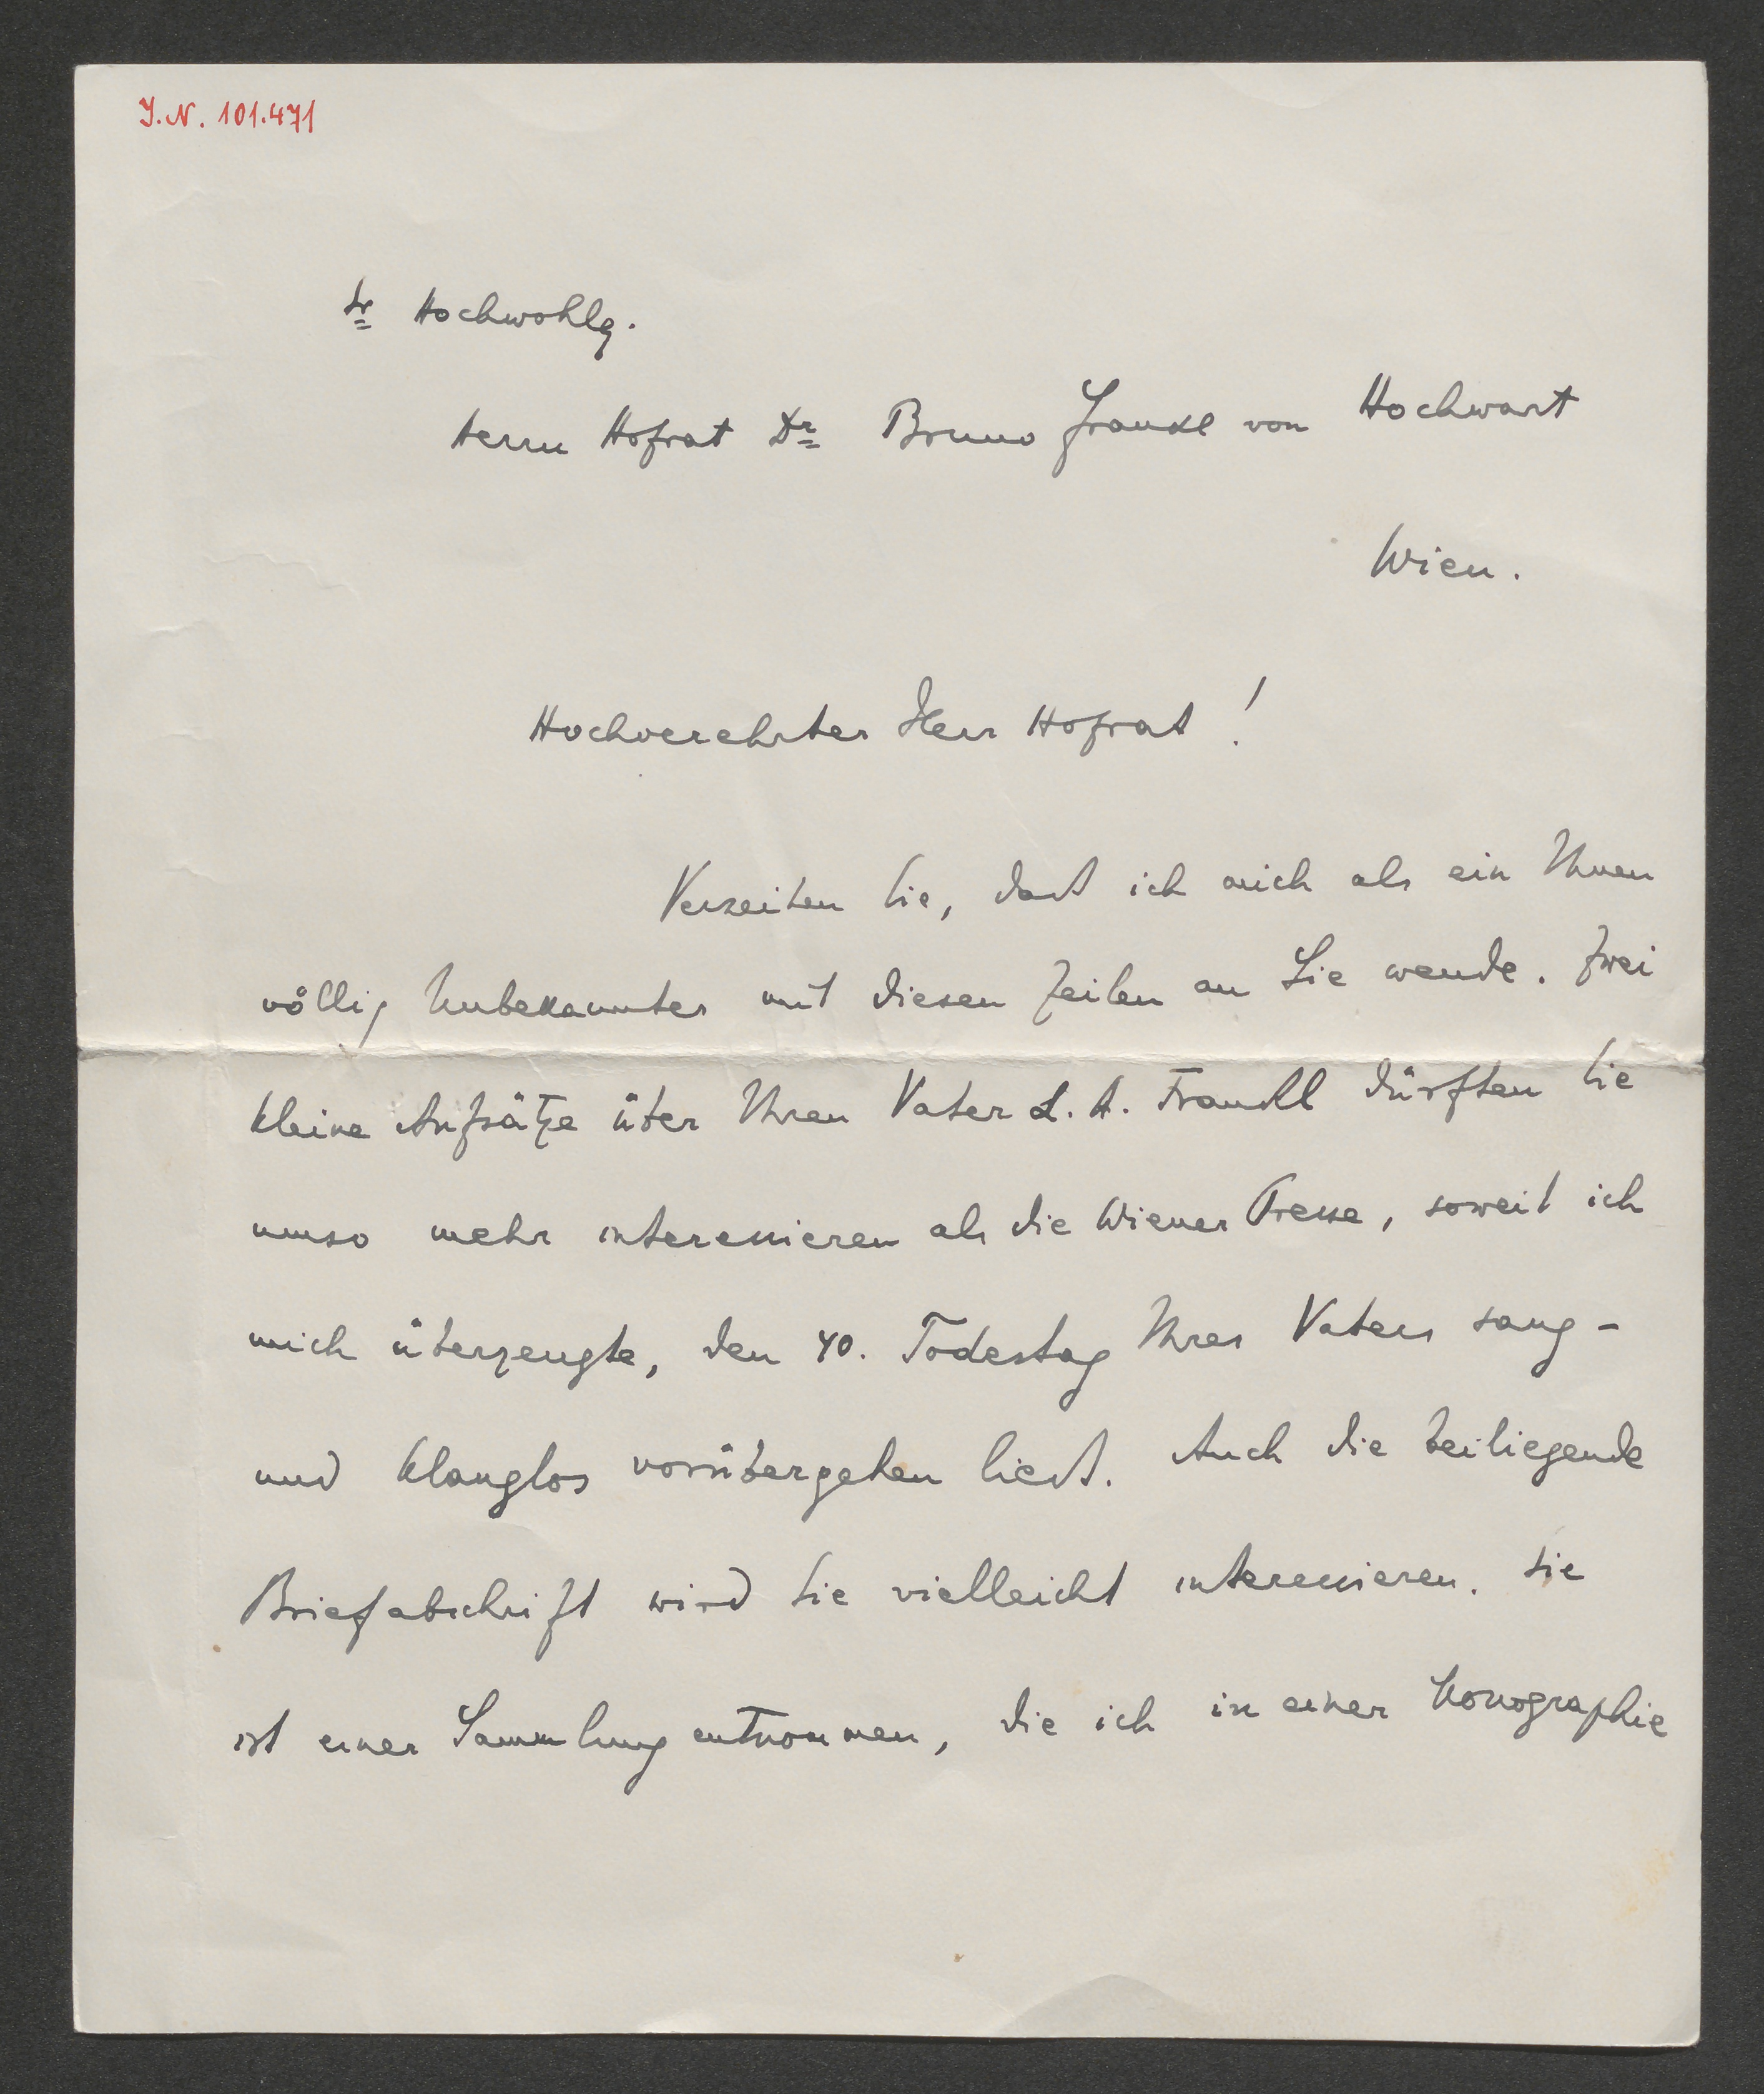 J.N. 101.471
Sr Hochwohlg.
Herrn Hofrat Dr Bruno Frankl von Hochwart
Wien.
Hochverehrter Herr Hofrat!
Verzeihen Sie, dass ich mich als ein Ihnen
völlig Unbekannter mit diesen Zeilen an Sie wende. Zwei
kleine Aufsätze über Ihren Vater L. A. Frankl dürften Sie
umso mehr interessieren als die Wiener Presse, soweit ich
mich überzeugte, den 40. Todestag Ihres Vaters sang-
und klanglos vorübergehen liess. Auch die beiliegende
Briefabschrift wird Sie vielleicht interessieren. Sie
ist einer Sammlung entnommen, die ich in einer Monographie